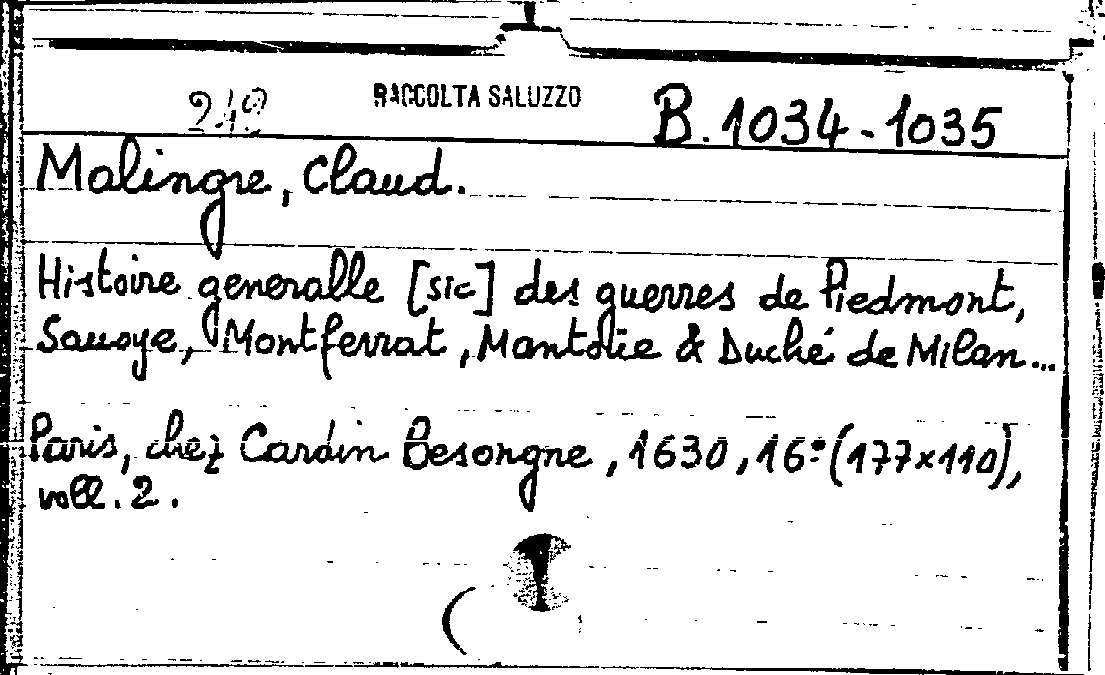 242 RACCOLTA SALUZZO B. 1034-1035
Malingre, Claud.
Histoire generalle [sic] des guerres de Piedmont,
Sauoye, Montferrat, Mantoüe & Duché de Milan...
Paris, chez Cardin Besongne, 1630, 16° (177x110),
voll. 2.